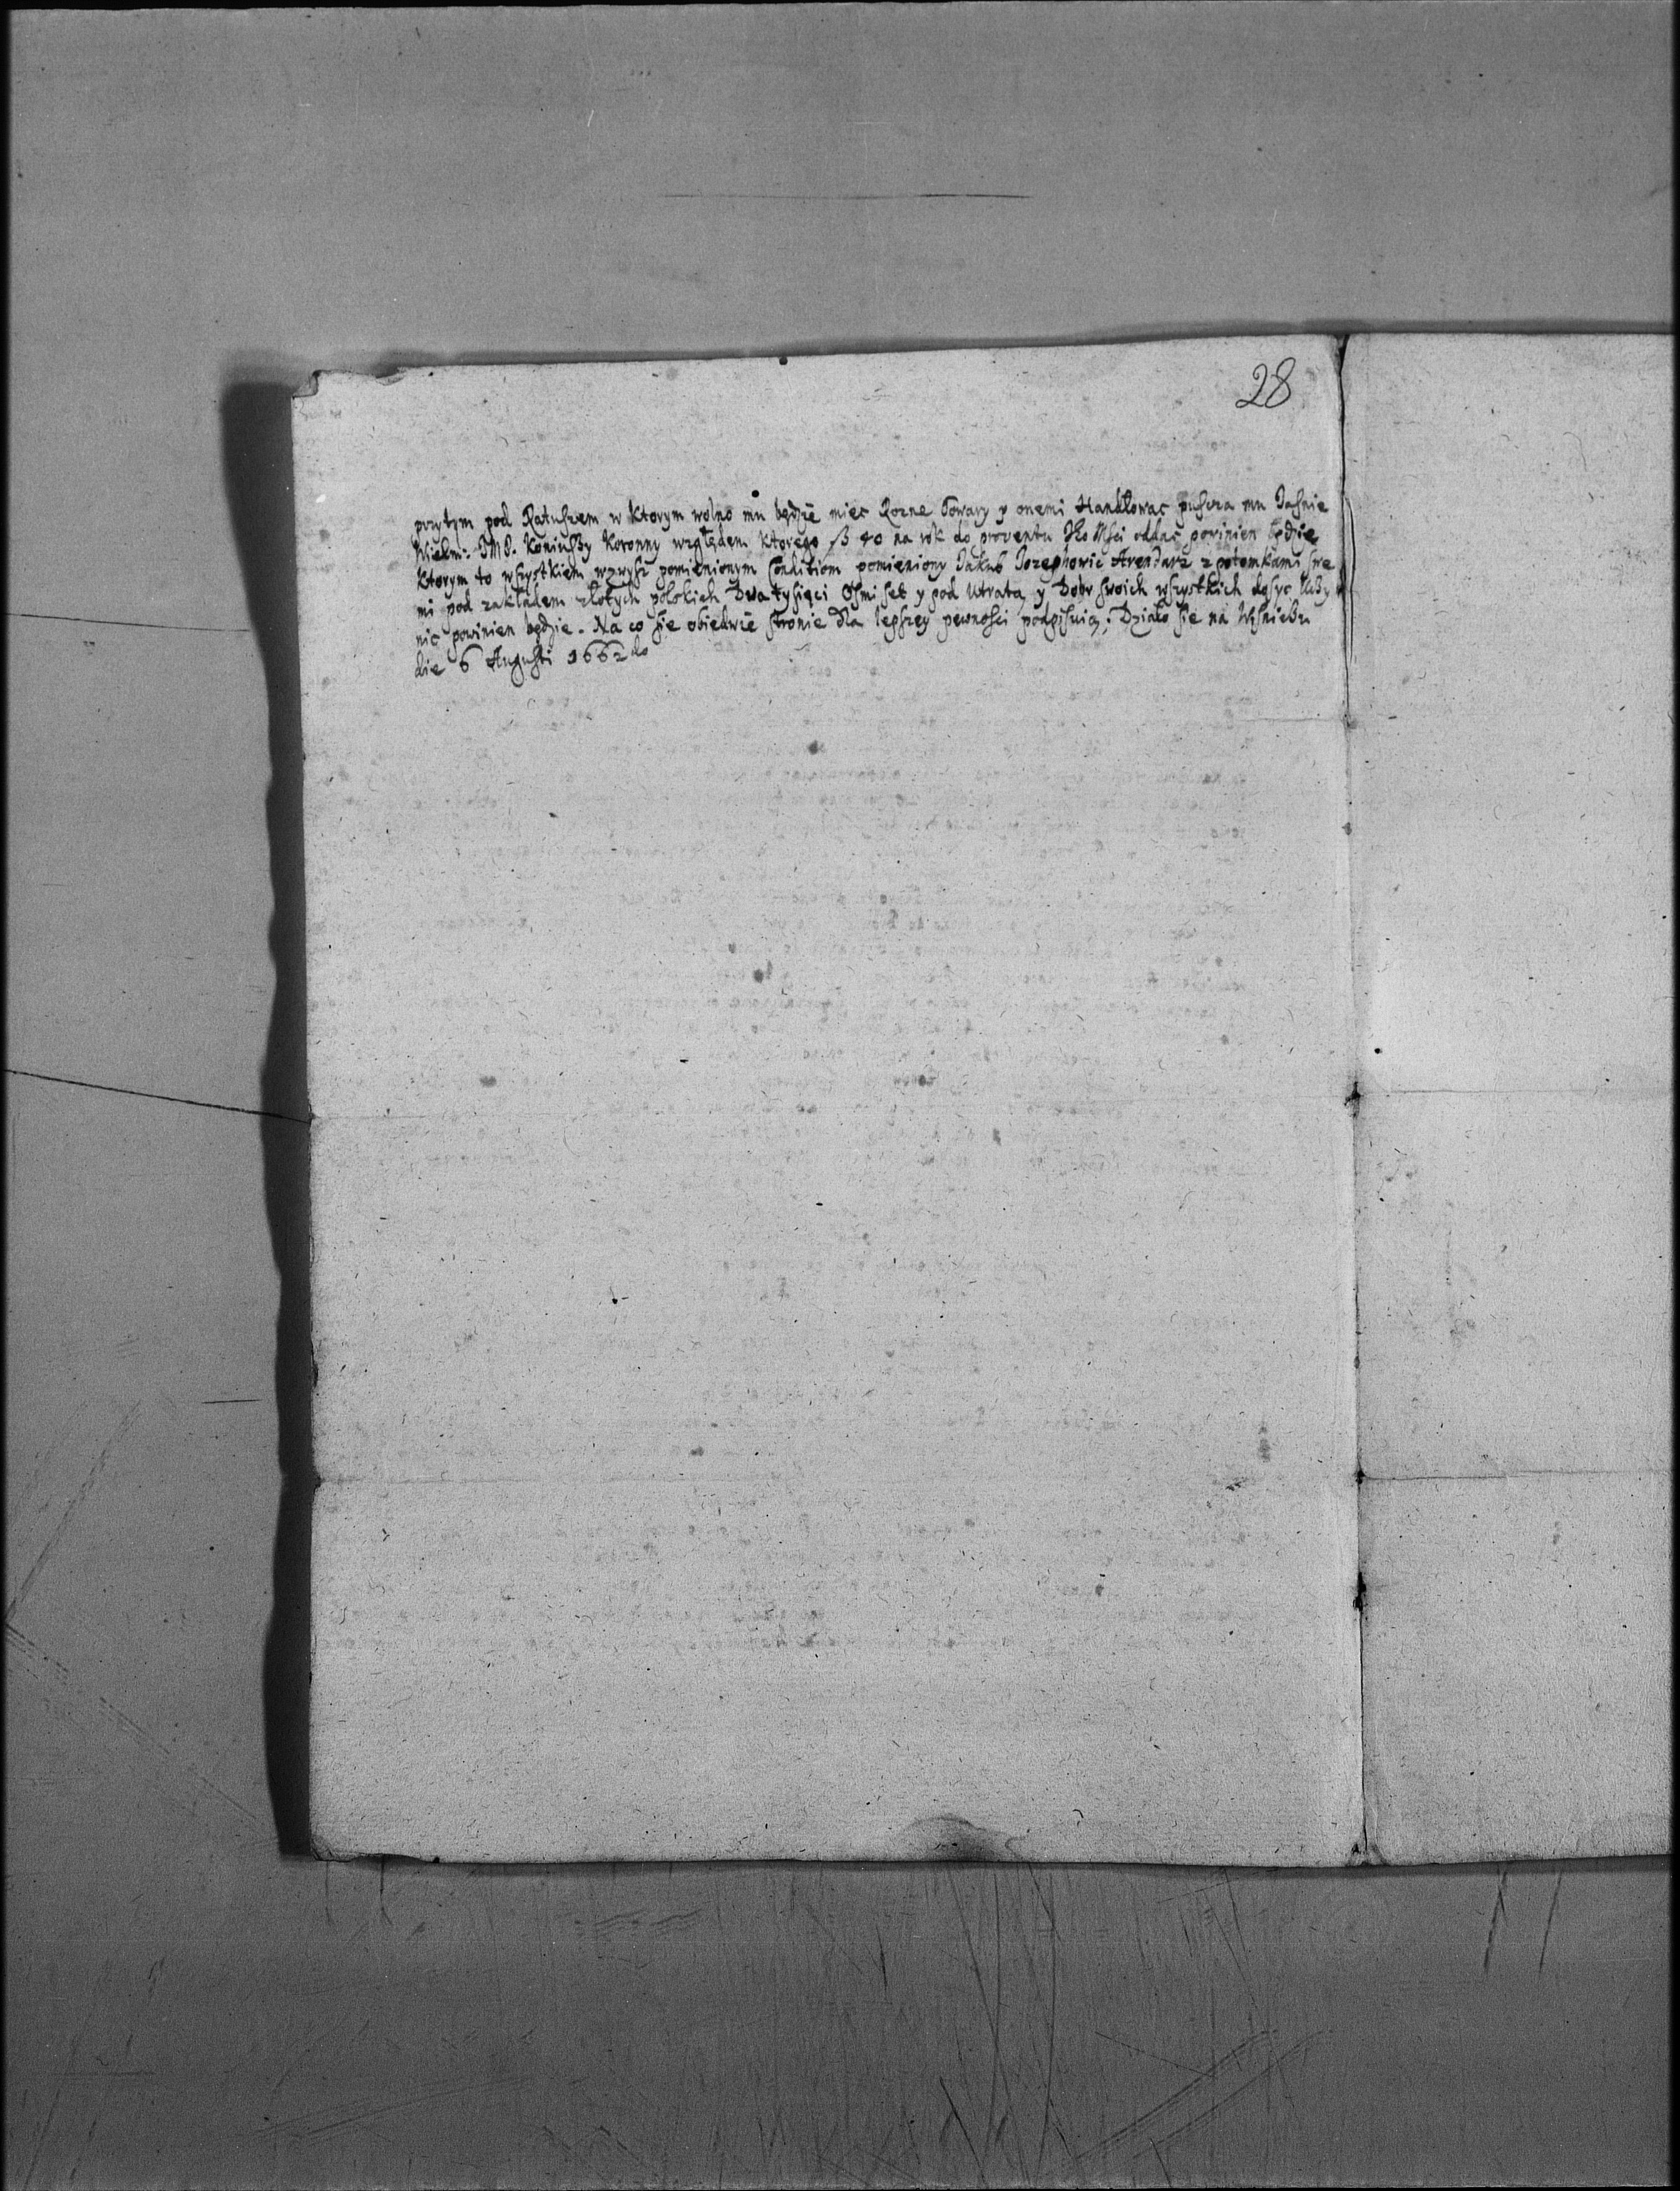 28
przytym pod Ratuszem w ktorym wolno mu będzie miec Rozne Towary y onemi Handlowac puszcza mu Jasnie
Wielm: JMP. Koniuszy Koronny względem ktorego fl 40 na rok do proventu JKo Msci oddac powinien będzie
ktorym to wszystkiem wzwysz pomienionym Conditiom pomieniony Jakub Jozephowic Arendarz z potomkami swe
mi pod zakładem złotych polskich Dwa tysięci Osmiset y pod Utratą y Dobr swoich wszystkich dosyc Uczy
nic powinien będzie. Na co sie obiedwie stronie dla lepszey pewnosci podpisuią; Działo sie na Wisniczu
die 6 Augusti 1662do